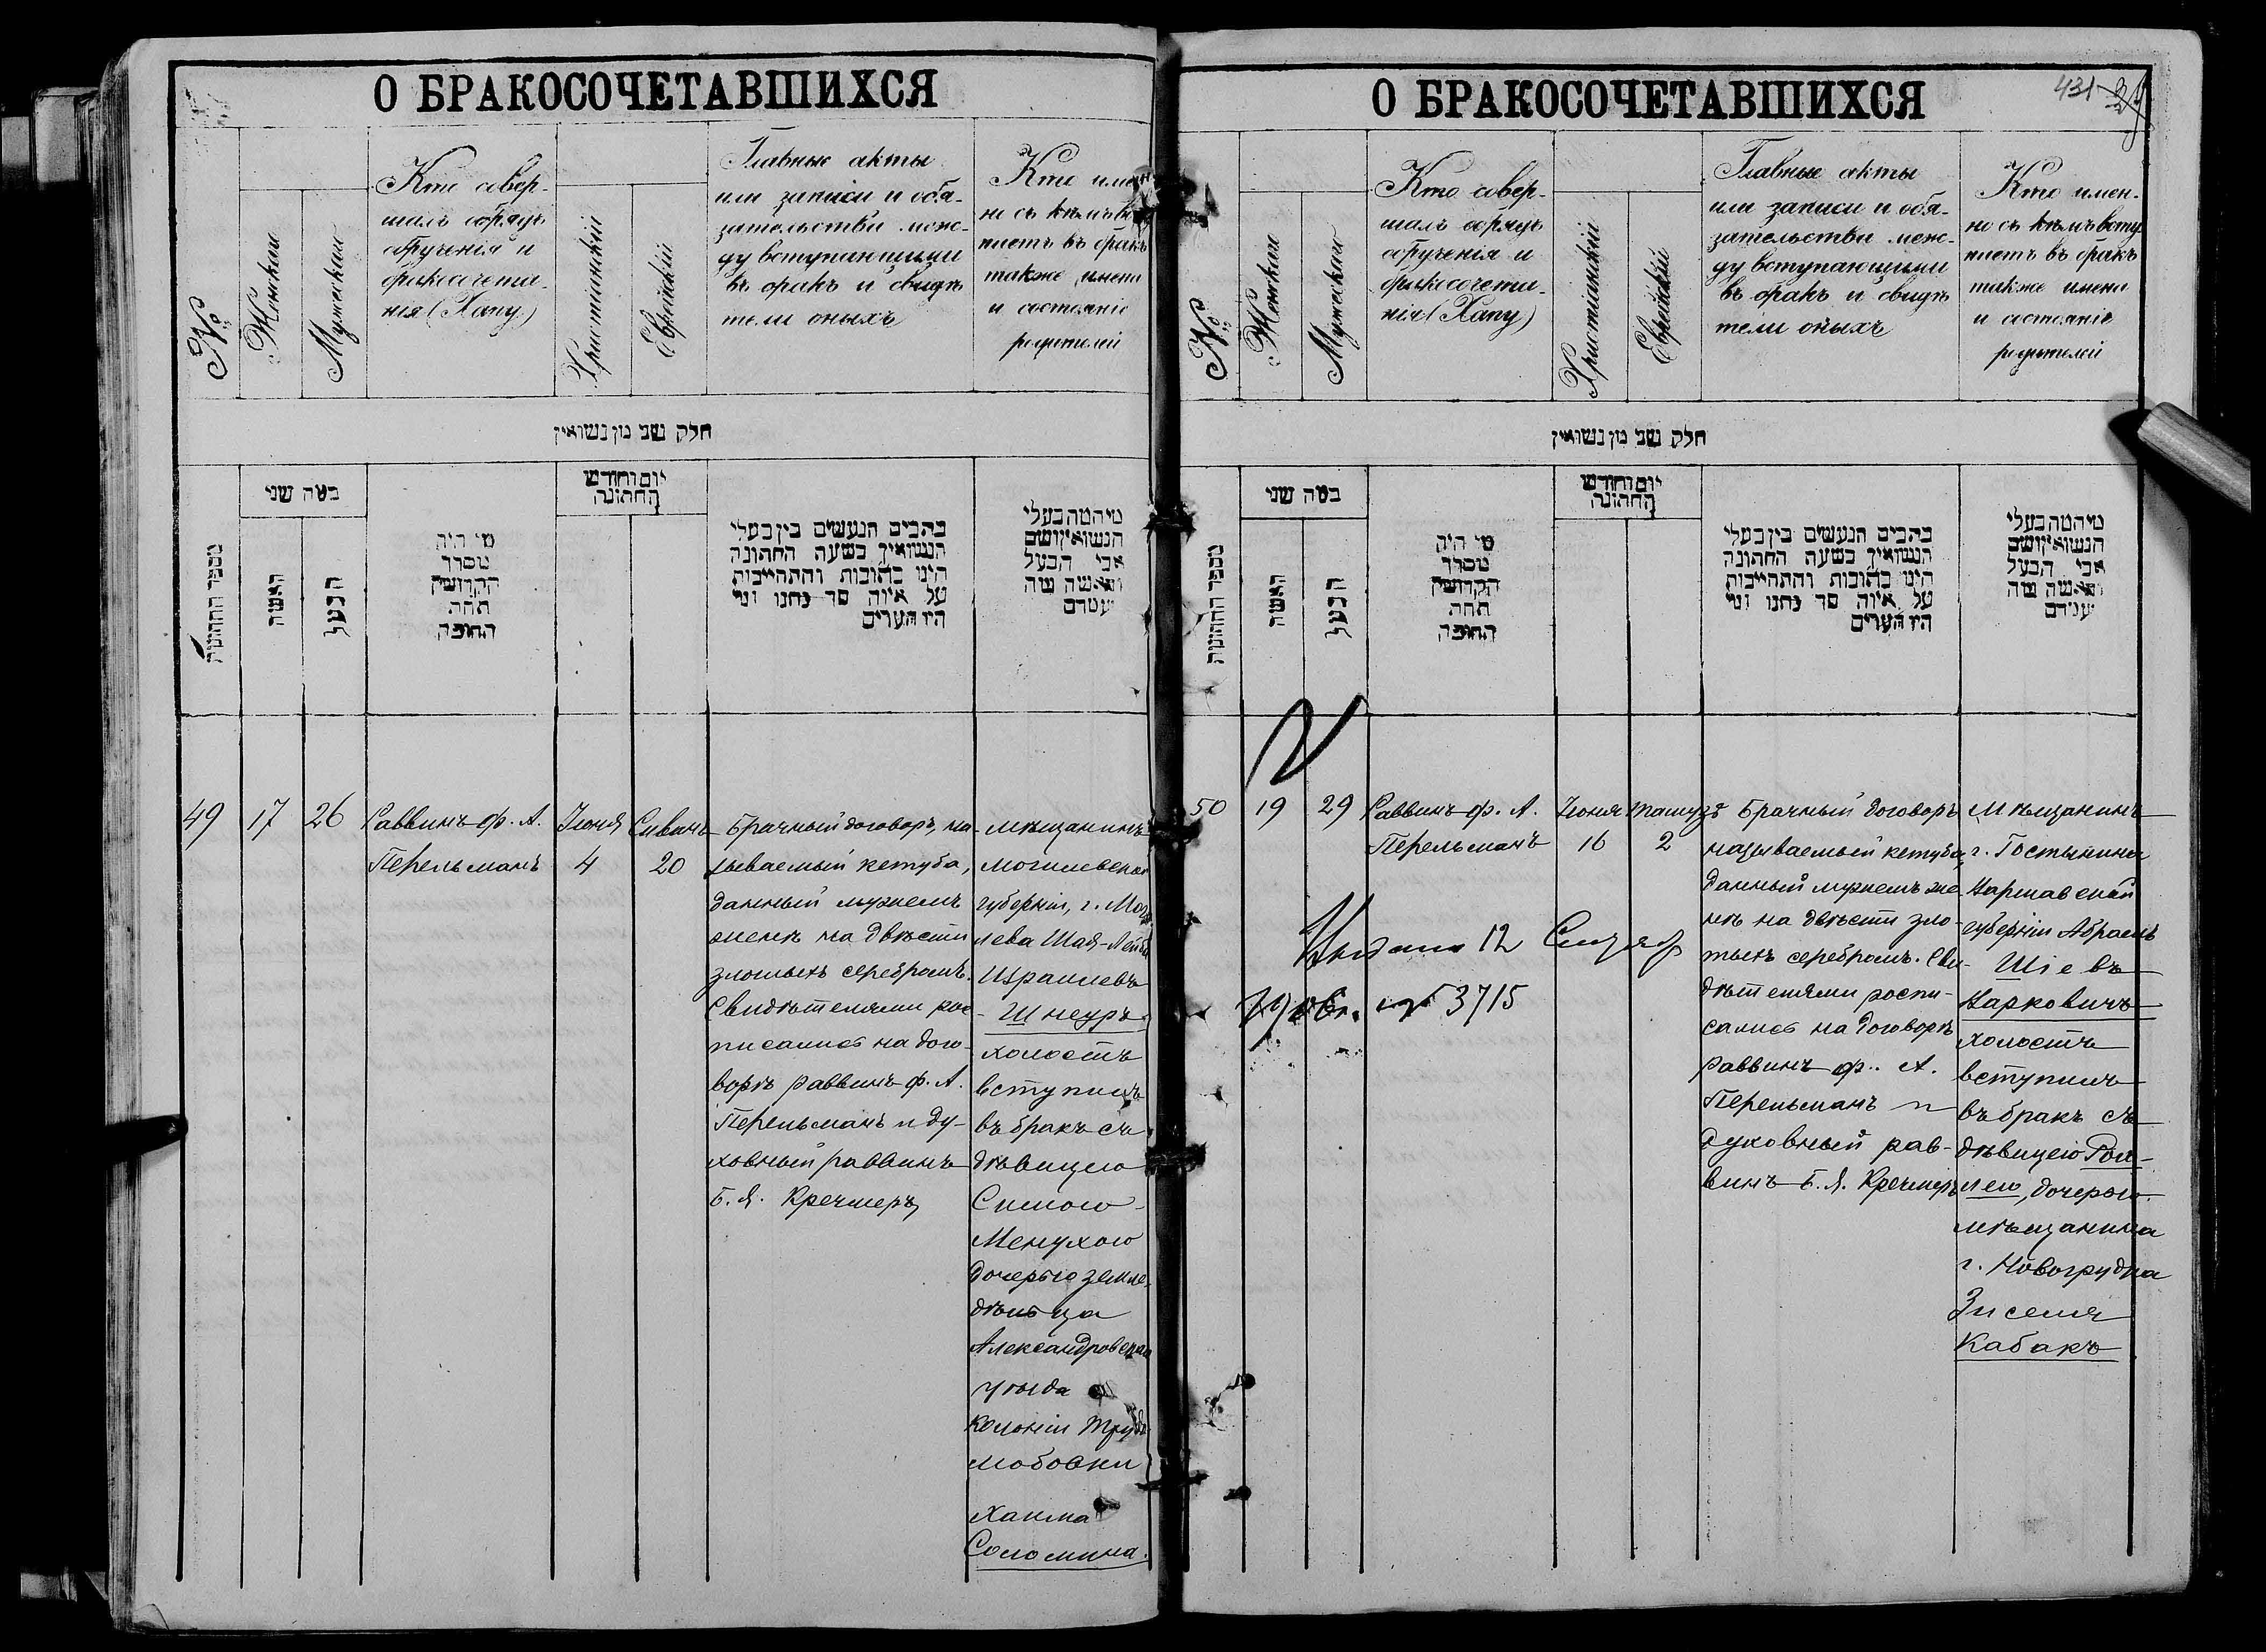 О БРАКОСОЧЕТАВШИХСЯ
№
Женскаго
Мужескаго
Кто совер-
шалъ обрядъ
обрученія и
бракосочета-
нія (Хапу)
Христіанскій
Еврейскій
Главные акты
или записи и обя-
зательства меж-
ду вступающими
въ бракъ и свидѣ
тели оныхъ
Кто имен
но съ кѣмъ всту
паетъ въ бракъ
также имена
и состояніе
родителей
חלק שני מן נשואין
מספר החתונות
כמה שני
האשה
הבעל
מי היה
מסדר
הקדושין
תחת
החופה
יום וחודש
החתונה
כתבים הנעשים בין בעלי
הנשואין בשעת החתונה
היינו כתובות והתחייבות
על איזה סך נתנו ומי
היו העדים
מי המה בעלי
הנשואין ושם
אבי הבעל
והאשה מה
49
17
26
Раввинъ Ф. А.
Перельманъ
Іюня
4
Сиванъ
20
Брачный договоръ, на-
зываемый кетуба,
данный мужемъ
женѣ на двѣсти
злотыхъ серебромъ.
Свидѣтелями рос-
писались на дого-
ворѣ раввинъ Ф. А.
Перельманъ и ду-
ховный раввинъ
Б. Я. Кречмеръ
Мѣщанинъ
Могилевской
губерніи, г. Моги
лева Шая-Лейба
Израилевъ
Шнеуръ
холостъ
вступилъ
въ бракъ съ
дѣвицею
Симою-
Менухою
дочерью земле-
дѣльца
Александровскаго
уѣзда
колоніи Трудо
любовки
Хаима
Соломина.
О БРАКОСОЧЕТАВШИХСЯ
431
№
Женскаго
Мужескаго
Кто совер-
шалъ обрядъ
обрученія и
бракосочета-
нія (Хапу)
Христіанскій
Еврейскій
Главные акты
или записи и обя-
зательства меж-
ду вступающими
въ бракъ и свидѣ
тели оныхъ
Кто имен-
но съ кѣмъ всту
паетъ въ бракъ
также имена
и состояніе
родителей
חלק שני מן נשואין
מספר החתונות
כמה שני
האשה
הבעל
מי היה
מסדר
הקדושין
תחת
החופה
יום וחודש
החתונה
כתבים הנעשים בין בעלי
הנשואין בשעת החתונה
היינו כתובות והתחייבות
על איזה סך נתנו ומי
היו העדים
מי המה בעלי
הנשואין ושם
אבי הבעל
והאשה מה
50
19
29
Раввинъ Ф. А.
Перельманъ
Іюня
16
Тамузъ
2
Брачный договоръ
называемый кетуба,
данный мужемъ же-
нѣ на двѣсти зло-
тыхъ серебромъ. Сви-
дѣтелями роспи-
сались на договорѣ
раввинъ Ф. А.
Перельманъ и
духовный рав-
винъ Б. Я. Кречмеръ
Мѣщанинъ
г. Гостынина
Варшавской
губерніи Абрамъ
Шіевъ
Нарковичъ
холостъ
вступилъ
въ бракъ съ
дѣвицею Рой-
лею, дочерью
мѣщанина
г. Новогрудка
Зиселя
Кабакъ
12
№ 3715